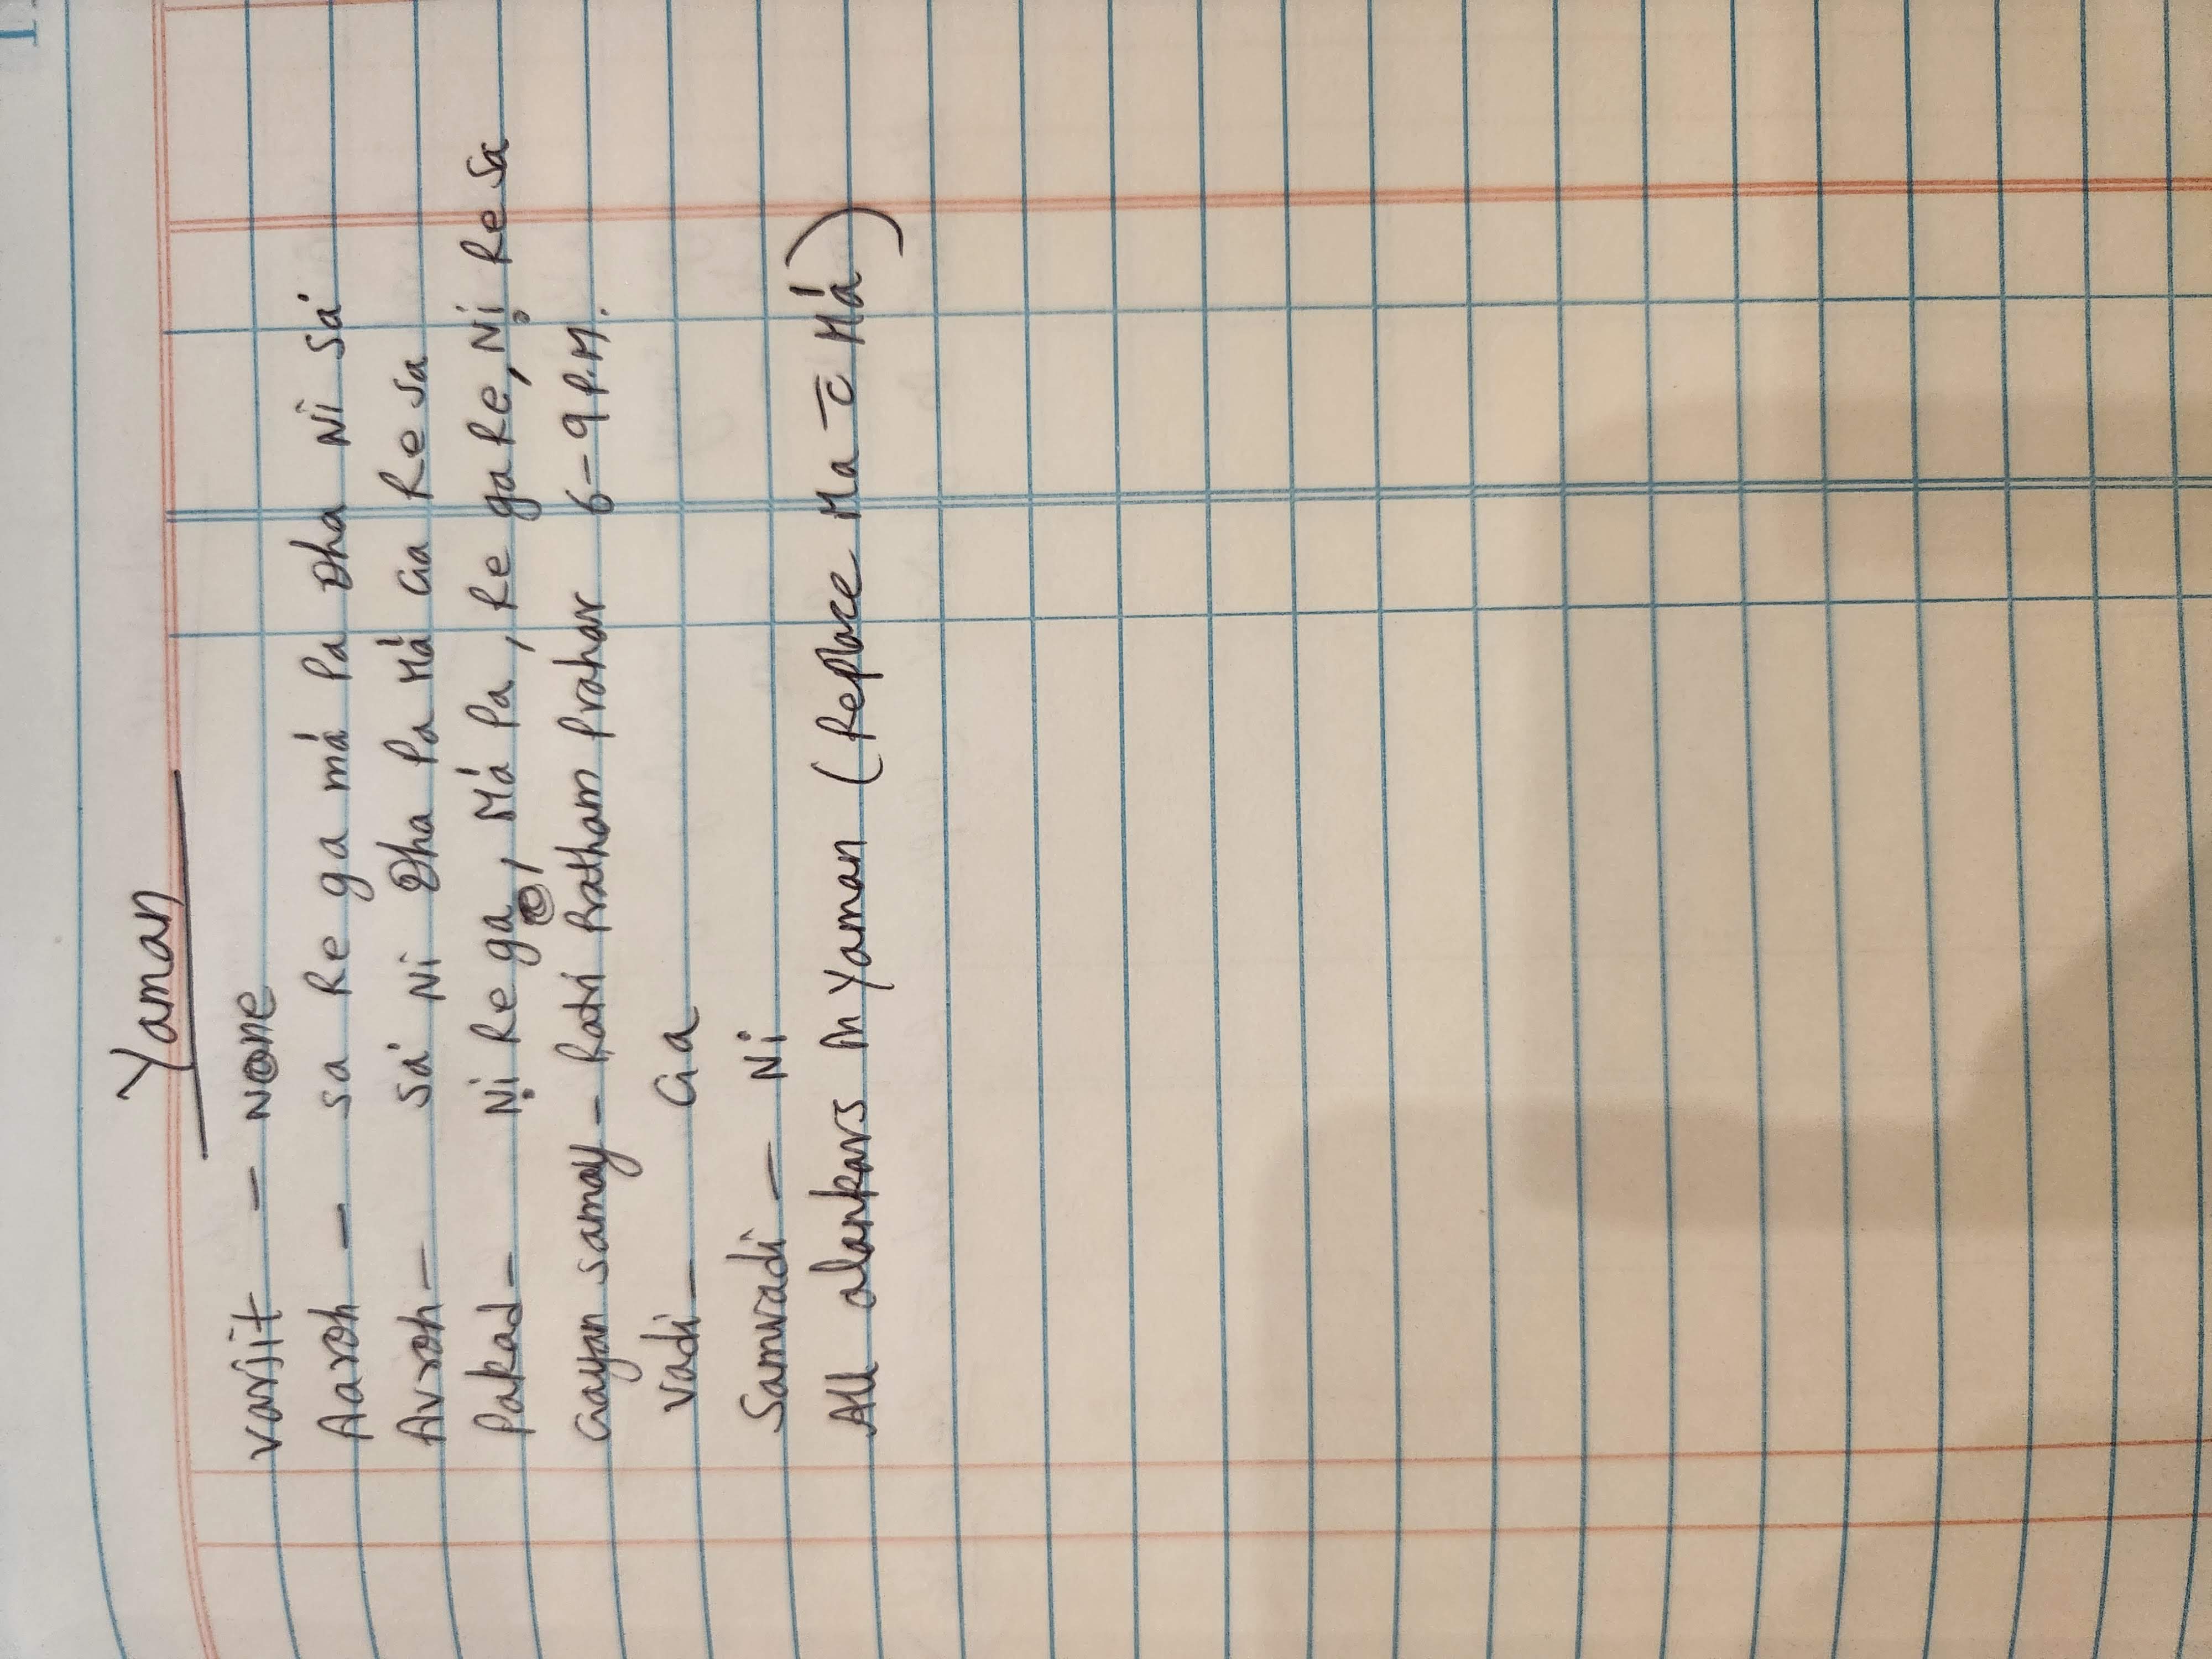 Yaman
Varjit - None
Aaroh - Sa Re ga má Pa Dha Ni Sá
Avroh - Sá Ni Dha Pa Má Ga Re Sa
Pakad - Nị Re ga, Má Pa, Re ga Re, Nị Re Sa
Gayan samay - Ratri Pratham Prahar 6-9 P.M.
Vadi - Ga
Samvadi - Ni
All alankars in Yaman (Replace Ma c̄ Má)